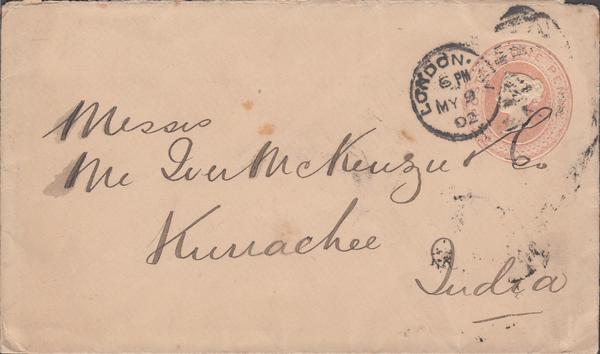 LONDON.
6 PM
MY 9
02
Messrs
Mc Iver McKenzie & Co
Kurrachee
India